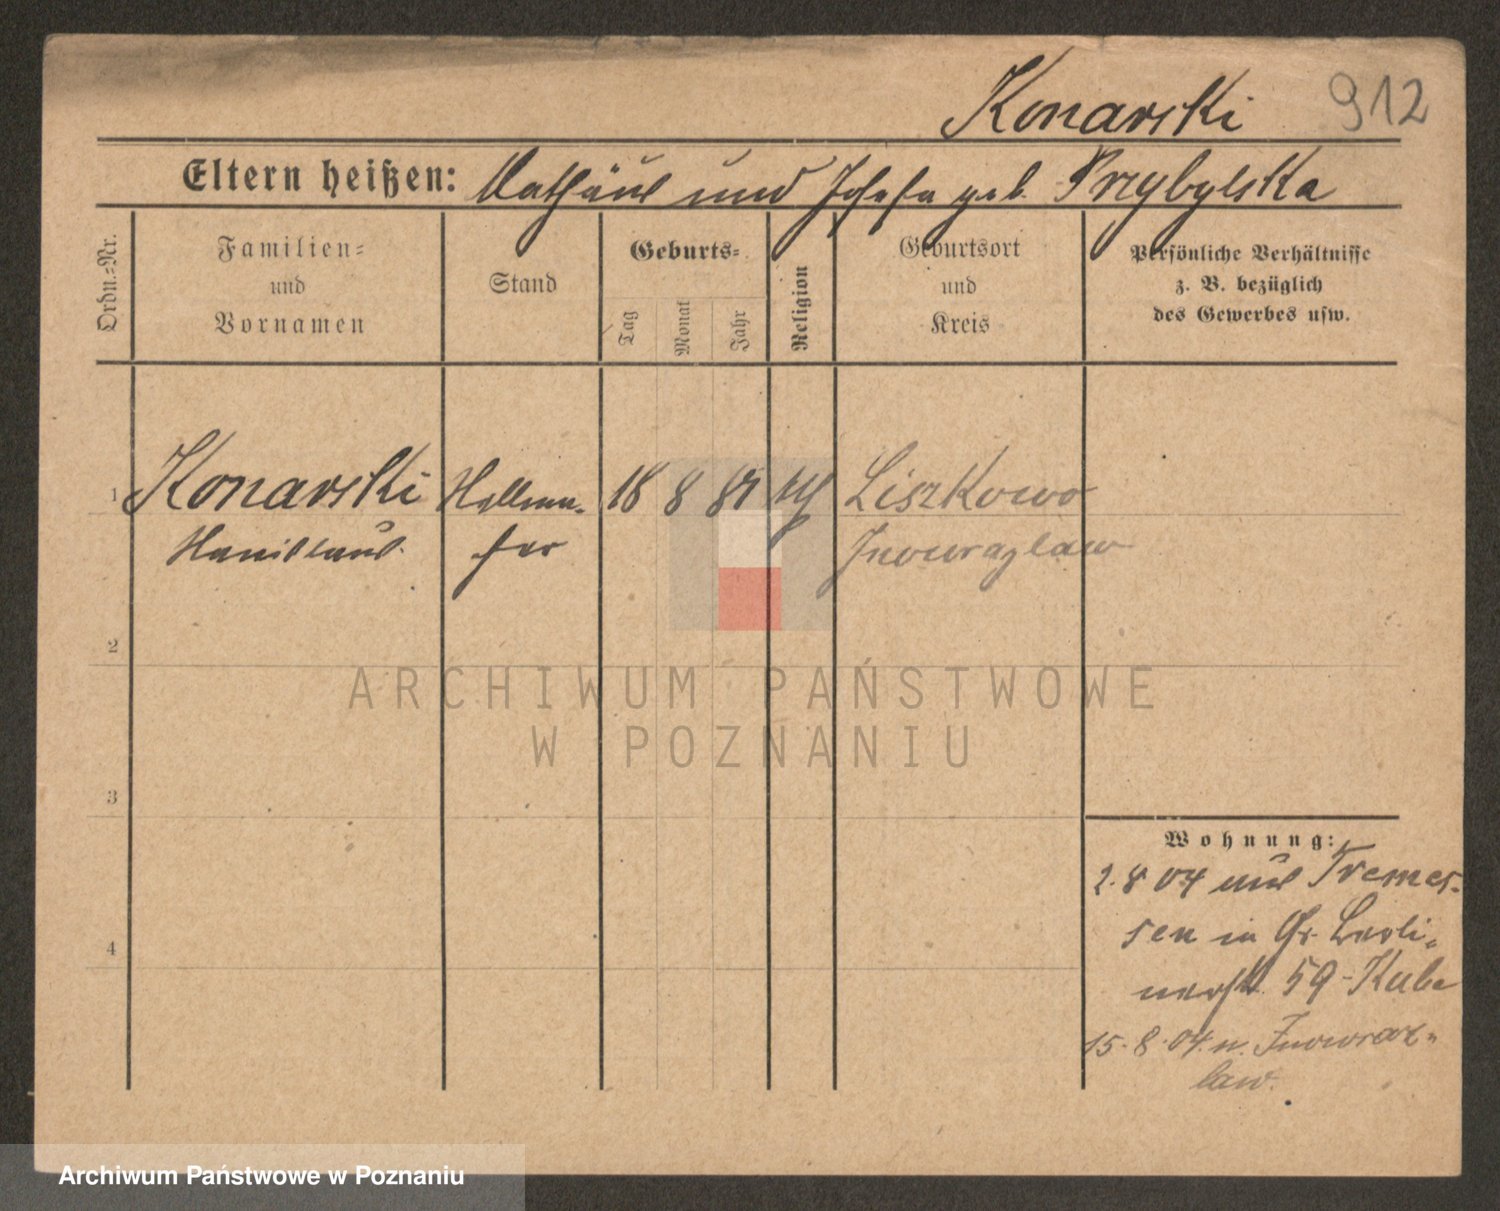 Konarski 912
Eltern heißen: Mathäus und Josefa geb. Przybylska
Ordn.=Nr.
Familien=
und
Vornamen
Stand
Geburts=
Tag
Monat
Jahr
Religion
Geburtsort
und
Kreis
Persönliche Verhältnisse
z. B. bezüglich
des Gewerbes usw.
1 Konarski 18 8 Liszkowo
Inowrazlaw
2
ARCHIWUM PAŃSTWOWE
W POZNANIU
3
4
Wohnung:
2.8 04 aus Tremes-
sen in Gr. Berli-
nerstr. 59 - Kube
15.8.04. n. Inowraz-
law.
Archiwum Państwowe w Poznaniu